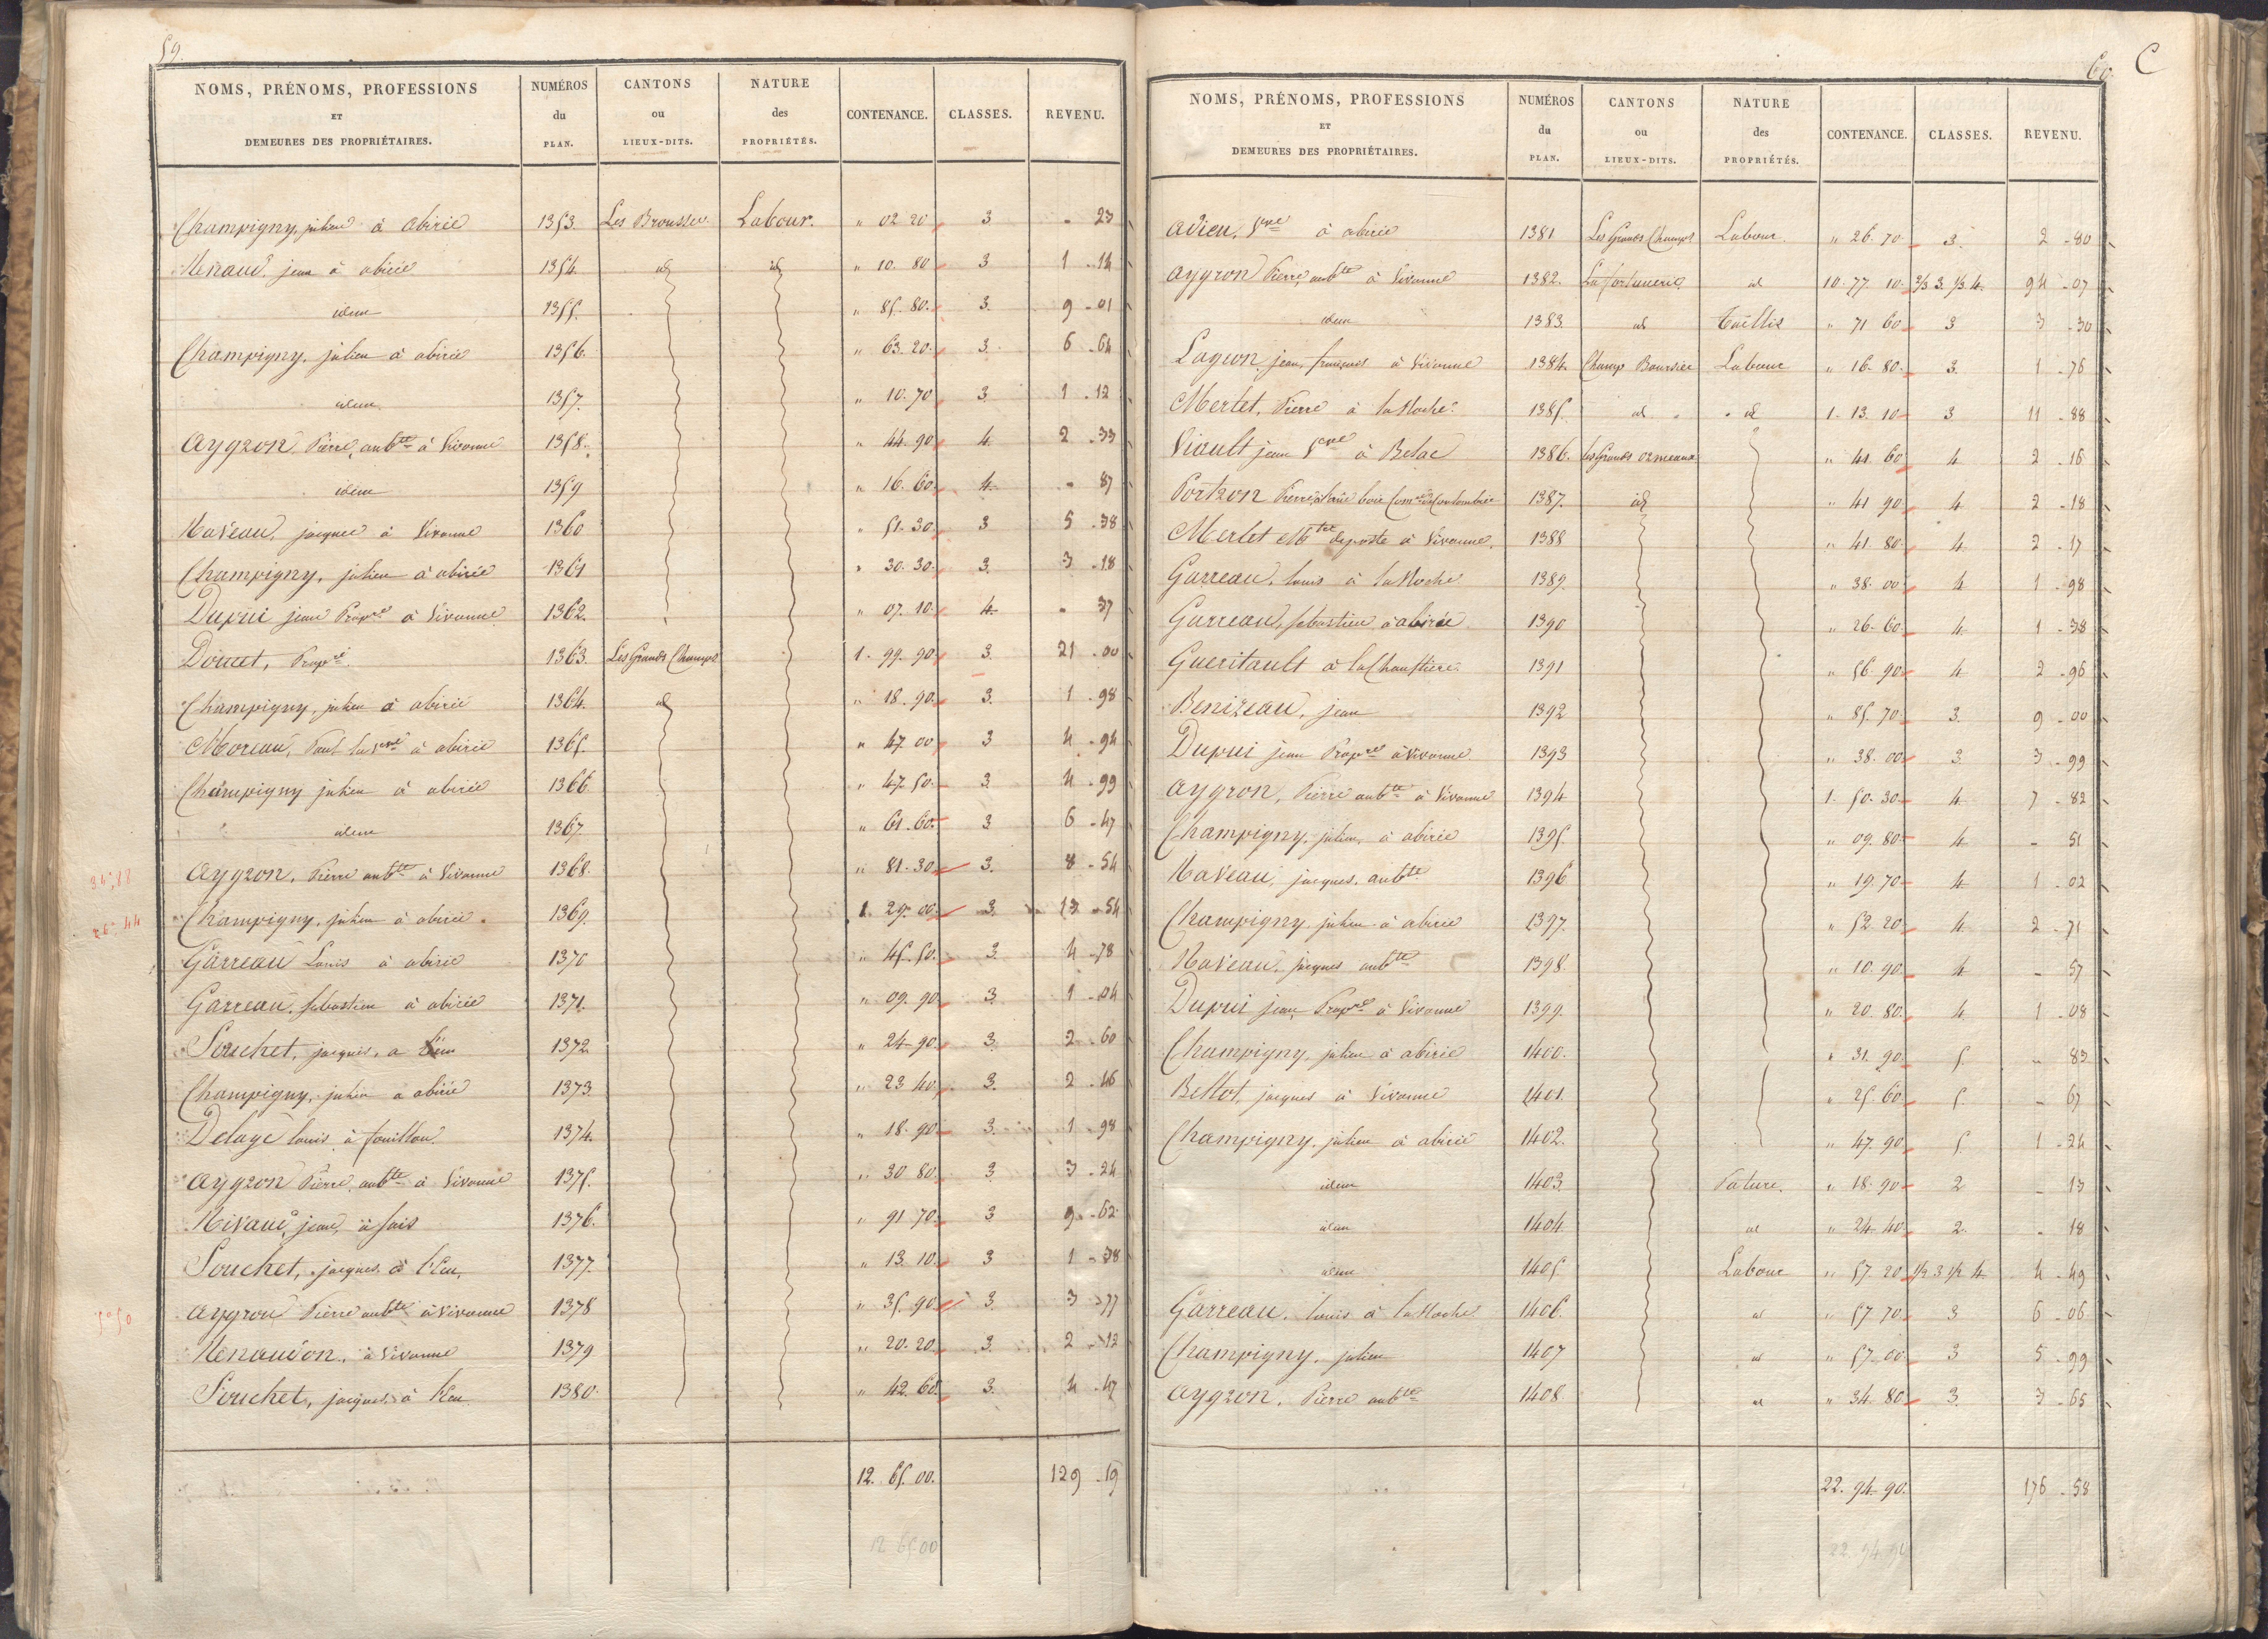 59.
NOMS, PRÉNOMS, PROFESSIONS ET DEMEURES DES PROPRIÉTAIRES. | NUMÉROS du PLAN. | CANTONS ou LIEUX-DITS. | NATURE des PROPRIÉTÉS. | CONTENANCE. | CLASSES. | REVENU.
Champigny, julien à abirée 1353. Les Brousses Labour. " 02 20 3 - 23
Renaud, jean à abirée 1354. id id " 10. 80 3 1 - 14
idem 1355. " 85. 80. 3. 9 - 01
Champigny, julien à abirée 1356. " 63. 20. 3. 6 - 64
idem 1357. " 10. 70 3 1 - 12
Aygron, Pierre, aubte à Vivonne 1358. " 44. 90 4 2 - 33
idem 1359 " 16. 60. 4. - 87
Naveau, jacques à Vivonne 1360 " 51. 30. 3 5 - 38
Champigny, julien à abirée 1361 " 30. 30. 3. 3 - 18
Dupui jean Propre à Vivonne 1362. " 07. 10. 4. - 37
Doucet, Propre 1363. Les Grands Champs 1. 99. 90 3. 21 - 00
Champigny, julien à abirée 1364. id " 18. 90 3. 1 - 98
Moreau, Paul la Vve à abirée 1365. " 47. 00 3 4 - 94
Champigny julien à abirée 1366. " 47. 50. 3. 4 - 99
idem 1367. " 61. 60. 3 6 - 47
34,88
Aygron, Pierre aubte à Vivonne 1368. " 81. 30. 3. 8 - 54
44
Champigny, julien à abirée. 1369. 1. 29. 00. 3. 13 - 54
Garreau Louis à abirée 1370 " 45. 50. 3. 4 - 78
Garreau, sebastien à abirée 1371. " 09. 90 3. 1 - 04
Souchet, jacques, à 1372. " 24. 90. 3. 2 - 60
Champigny, julien à abirée 1373. " 23. 40. 3. 2 - 46
Delage louis à fouillou 1374. " 18. 90 3. 1 - 98
Aygron Pierre, aubte à Vivonne 1375. " 30. 80. 3 3 - 24
jean, à fais 1376. " 91. 70. 3 9 - 62
Souchet, jacques à l'Eeu, 1377. " 13. 10. 3 1 - 38
Aygron Pierre aubte à Vivonne 1378 " 35. 90 3. 3 - 77
Renaudon, à Vivonne 1379 " 20. 20. 3. 2 - 12
Souchet, jacques à 1380. " 42. 60. 3. 4 - 47
12. 65. 00. 129 - 19
12 65 00
60. C
NOMS, PRÉNOMS, PROFESSIONS ET DEMEURES DES PROPRIÉTAIRES. | NUMÉROS du PLAN. | CANTONS ou LIEUX-DITS. | NATURE des PROPRIÉTÉS. | CONTENANCE. | CLASSES. | REVENU.
Adieu, Vve à abirée 1381 Les Grands Champs Labour. " 26. 70 3. 2 - 80
Aygron Pierre, aubte à Vivonne 1382. La fortunerie id 10. 77. 10. 2/3 3. 1/3 4. 94 - 07
idem 1383. id Taillis " 71 60 3 3 - 30
Lageon, jean, françois à Vivonne 1384. Champ Boursier Labour " 16. 80. 3. 1 - 76
Merlet, Pierre à la Roche. 1385. id id 1. 13. 10 3 11 - 88
Viault jean Vve à Belac 1386. les Grands ormeaux " 41. 60 4 2 - 16
Portron Pierre 1387. id " 41 90 4 2 - 18
Merlet Mtre deposte à Vivonne. 1388 " 41. 80. 4. 2 - 17
Garreau, louis à la Roche 1389. " 38. 00 4 1 - 98
Garreau, sebastien à abirée 1390 " 26. 60. 4. 1 - 38
Gueritault à la Chaustiere. 1391 " 56. 90 4 2 - 96
Benizeau, jean 1392 " 85. 70. 3. 9 - 00
Dupui jean Propre à Vivonne. 1393 " 38. 00 3. 3 - 99
Aygron, Pierre aubte à Vivonne 1394 1. 50. 30 4. 7 - 82
Champigny, julien, à abirée 1395. " 09. 80 4. - 51
Naveau, jacques, aubte 1396 " 19. 70 4 1 - 02
Champigny, julien à abirée 1397. " 52. 20 4. 2 - 71
Naveau, jacques aubte 1398. " 10. 90. 4 - 57
Dupui jean, Propre à Vivonne 1399. " 20. 80. 4. 1 - 08
Champigny, julien à abirée 1400. " 31. 90. 5. - 83
Bellot, jacques à Vivonne 1401. " 25. 60. 5. - 67
Champigny, julien à abirée 1402. " 47. 90 5. 1 - 24
idem 1403. Pature. " 18. 90 2 - 13
idem 1404. id " 24. 40. 2. - 18
idem 1405. Labour " 57. 20 1/2 3 1/2 4. 4 - 49
Garreau, louis à la Roche 1406. id " 57. 70. 3 6 - 06
Champigny, julien 1407 id " 57. 00 3 5 - 99
Aygron, Pierre aubte 1408 id " 34. 80 3. 3 - 65
22. 94. 90. 176 - 58
22. 94 90